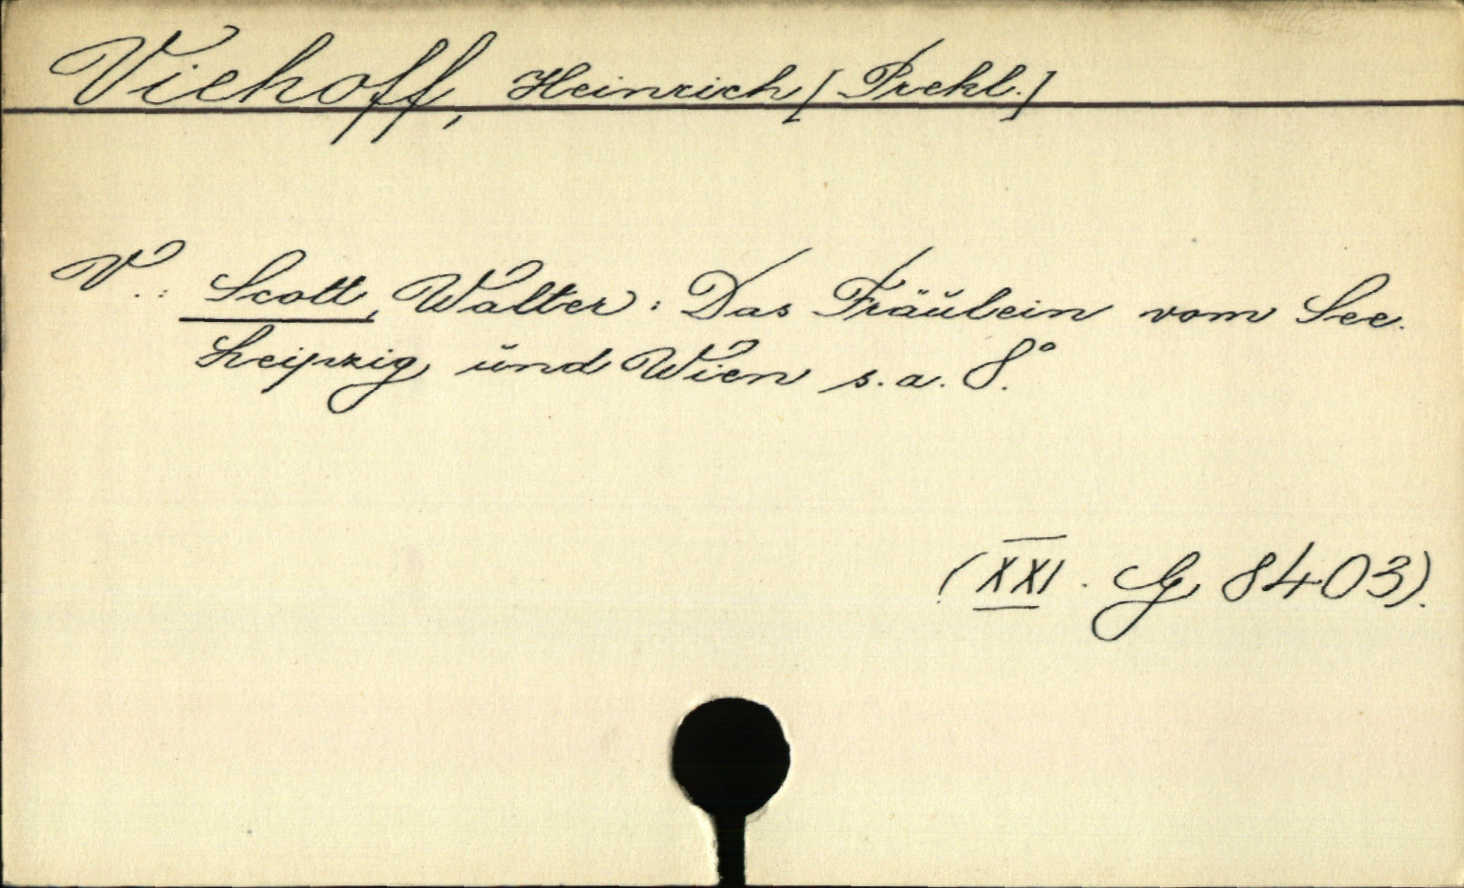 Viehoff, Heinrich [Prekl.]
V.: Scott, Walter: Das Fräulein vom See.
Leipzig und Wien s.a. 8°.
(XXI. G 8403).